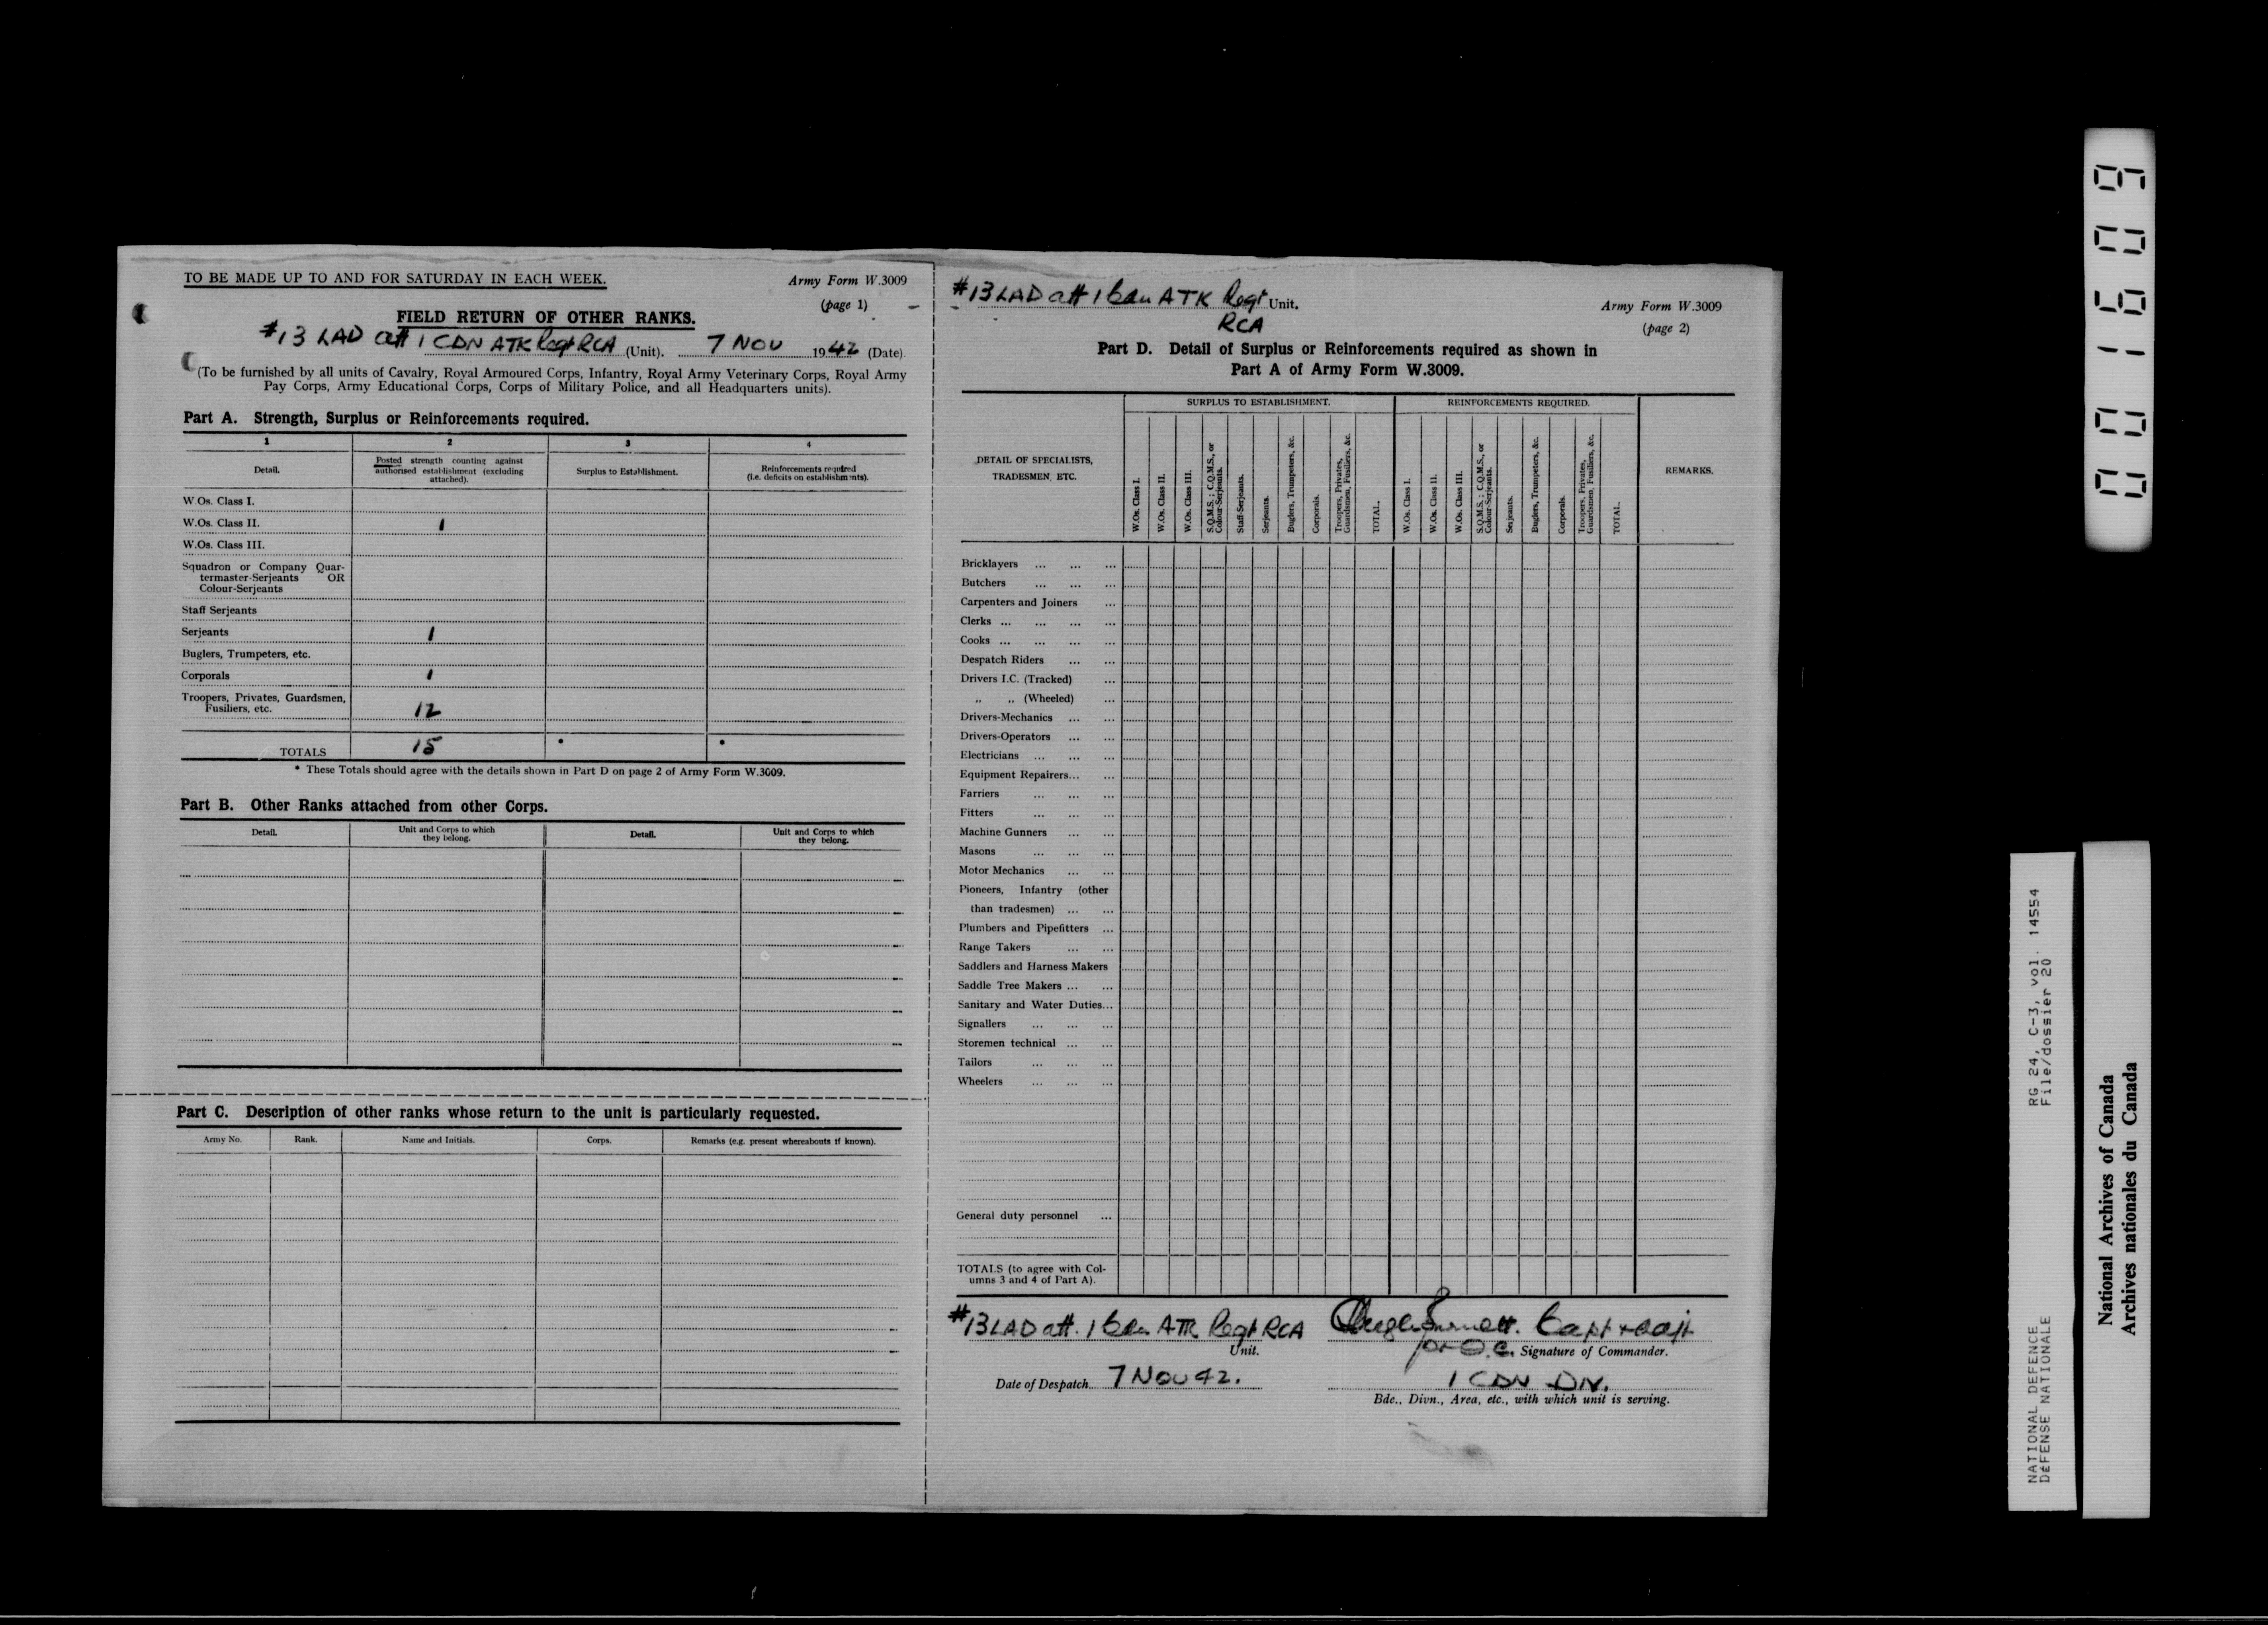 TO BE MADE UP TO AND FOR SATURDAY IN EACH WEEK.
Army Form W.3009
(page 1)
FIELD RETURN OF OTHER RANKS.
#13 LAD att 1 CDN ATK Regt RCA (Unit). 7 NOV 1942 (Date).
(To be furnished by all units of Cavalry, Royal Armoured Corps, Infantry, Royal Army Veterinary Corps, Royal Army
Pay Corps, Army Educational Corps, Corps of Military Police, and all Headquarters units).
Part A. Strength, Surplus or Reinforcements required.
1 2 3 4
Detail.
Posted strength counting against
authorised establishment (excluding
attached).
Surplus to Establishment.
Reinforcements required
(i.e. deficits on establishments).
W.Os. Class I.
W.Os. Class II. 1
W.Os. Class III.
Squadron or Company Quar-
termaster-Serjeants OR
Colour-Serjeants
Staff Serjeants
Serjeants 1
Buglers, Trumpeters, etc.
Corporals 1
Troopers, Privates, Guardsmen,
Fusiliers, etc. 12
TOTALS 15 * *
* These Totals should agree with the details shown in Part D on page 2 of Army Form W.3009.
Part B. Other Ranks attached from other Corps.
Detail.
Unit and Corps to which
they belong.
Detail.
Unit and Corps to which
they belong.
Part C. Description of other ranks whose return to the unit is particularly requested.
Army No. Rank. Name and Initials. Corps. Remarks (e.g. present whereabouts if known).
#13 LAD att 1 Cdn ATK Regt Unit.
RCA
Army Form W.3009
(page 2)
Part D. Detail of Surplus or Reinforcements required as shown in
Part A of Army Form W.3009.
DETAIL OF SPECIALISTS,
TRADESMEN, ETC.
SURPLUS TO ESTABLISHMENT.
W.Os. Class I.
W.Os. Class II.
W.Os. Class III.
S.Q.M.S.; C.Q.M.S., or
Colour-Serjeants.
Staff-Serjeants.
Serjeants.
Buglers, Trumpeters, &c.
Corporals.
Troopers, Privates,
Guardsmen, Fusiliers, &c.
TOTAL.
REINFORCEMENTS REQUIRED.
W.Os. Class I.
W.Os. Class II.
W.Os. Class III.
S.Q.M.S.; C.Q.M.S., or
Colour-Serjeants.
Serjeants.
Buglers, Trumpeters, &c.
Corporals.
Troopers, Privates,
Guardsmen, Fusiliers, &c.
TOTAL.
REMARKS.
Bricklayers ... ... ...
Butchers ... ... ...
Carpenters and Joiners ...
Clerks ... ... ... ...
Cooks ... ... ... ...
Despatch Riders ... ...
Drivers I.C. (Tracked) ...
„ „ (Wheeled) ...
Drivers-Mechanics ... ...
Drivers-Operators ... ...
Electricians ... ... ...
Equipment Repairers... ...
Farriers ... ... ...
Fitters ... ... ...
Machine Gunners ... ...
Masons ... ... ...
Motor Mechanics ... ...
Pioneers, Infantry (other
than tradesmen) ... ...
Plumbers and Pipefitters ...
Range Takers ... ...
Saddlers and Harness Makers
Saddle Tree Makers ... ...
Sanitary and Water Duties...
Signallers ... ... ...
Storemen technical ... ...
Tailors ... ... ...
Wheelers ... ... ...
General duty personnel ...
TOTALS (to agree with Col-
umns 3 and 4 of Part A).
#13 LAD att. 1 Cdn ATK Regt RCA
Unit.
Capt + Adjt
for O.C. Signature of Commander.
Date of Despatch 7 NOV 42.
1 CDN DIV.
Bde., Divn., Area, etc., with which unit is serving.
001609
NATIONAL DEFENCE RG 24, C-3, vol. 14554
DÉFENSE NATIONALE File/dossier 20
National Archives of Canada
Archives nationales du Canada